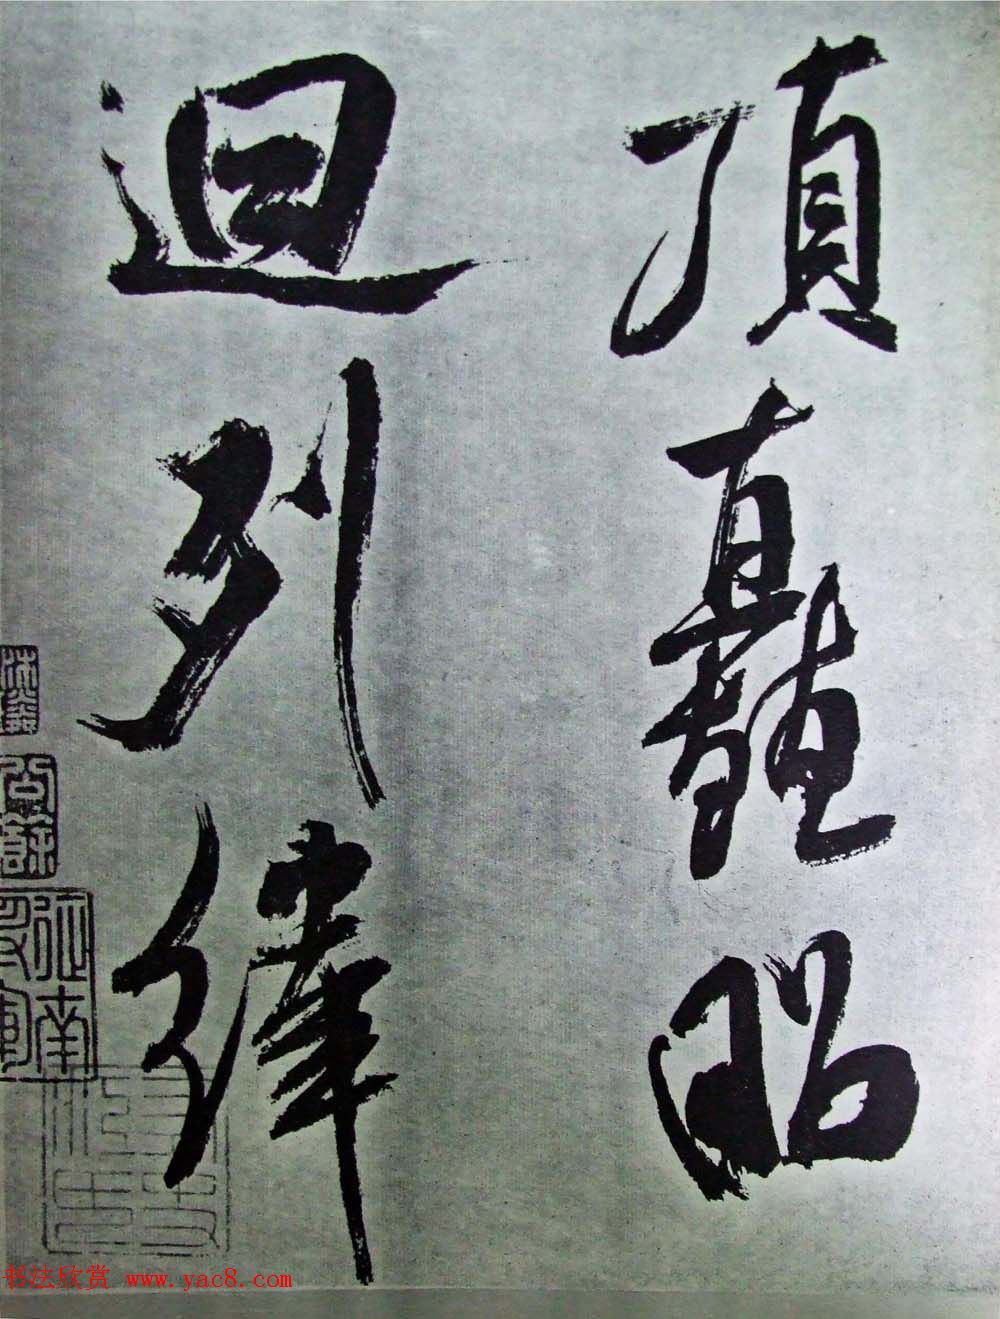 頂矗昭
迴列緯
书法欣赏 www.yac8.com